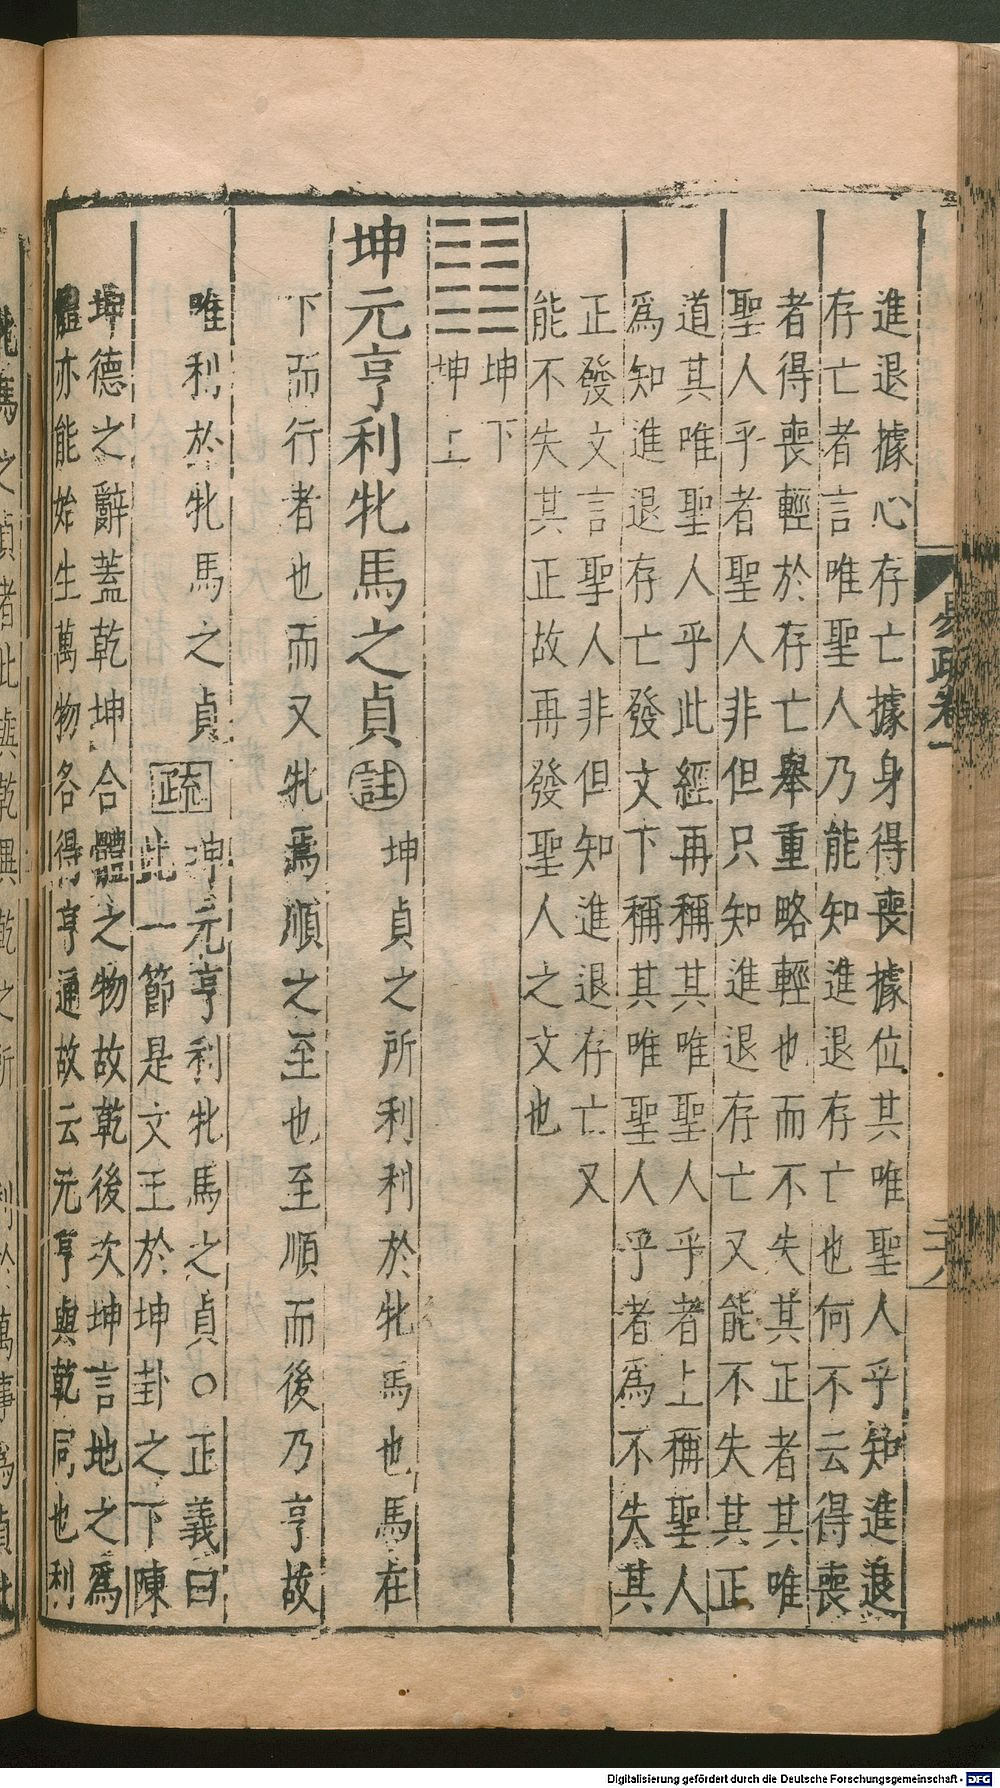 進退據心存亡據身得喪據位其唯聖人乎知進退
存亡者言唯聖人乃能知進退存亡也何不云得喪
者得喪輕於存亡舉重略輕也而不失其正者其唯
聖人乎者聖人非但只知進退存亡又能不失其正
道其唯聖人乎此經再稱其唯聖人乎者上稱聖人
爲知進退存亡發文下稱其唯聖人乎者爲不失其
正發文言聖人非但知進退存亡又
能不失其正故再發聖人之文也
坤下
坤上
坤元亨利牝馬之貞註坤貞之所利利於牝馬也馬在
下而行者也而又牝焉順之至也至順而後乃亨故
唯利於牝馬之貞疏坤元亨利牝馬之貞○正義曰
此一節是文王於坤卦之下陳
坤德之辭蓋乾坤合體之物故乾後次坤言地之爲
體亦能始生萬物各得亨通故云元亨與乾同也利
易疏卷一
二十八
牝馬之貞者此與乾異乾之所
利於萬事爲貞此
Digitalisierung gefördert durch die Deutsche Forschungsgemeinschaft - DFG